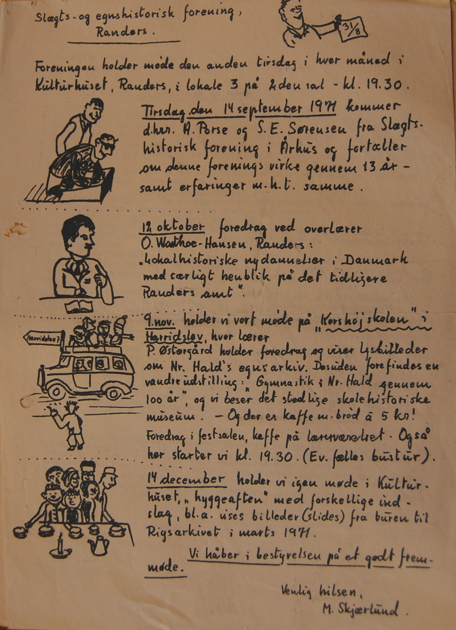 Slægts- og egnshistorisk forening,
Randers.
31/8
Foreningen holder møde den anden tirsdag i hver måned i
Kulturhuset, Randers, i lokale 3 på 2den sal - kl. 19.30.
Tirsdag den 14 september 1971 kommer
d.hrr. A. Porse og S. E. Sørensen fra Slægts-
historisk forening i Århus og fortæller
om denne forenings virke gennem 13 år -
samt erfaringer m.h.t. samme.
12 oktober foredrag ved overlærer
O. Hansen, Randers:
"Lokalhistoriske nydannelser i Danmark
med særligt henblik på det tidligere
Randers amt".
Harridslev
9. nov. holder vi vort møde på "Korshøjskolen" i
Harridslev, hvor lærer
P. Østergård holder foredrag og viser lysbilleder
om Nr. Hald's egnsarkiv. Desuden forefindes en
vandreudstilling: "Gymnastik i Nr. Hald gennem
100 år", og vi beser det stedlige skolehistoriske
museum. - Og der er kaffe m. brød à 5 kr!
Foredrag i festsalen, kaffe på lærerværelset. Også
her starter vi kl. 19.30. (Ev. fælles bustur).
14 december holder vi igen møde i Kultur-
huset, "hyggeaften" med forskellige ind-
slag, bl.a. vises billeder (slides) fra turen til
Rigsarkivet i marts 1971.
Vi håber i bestyrelsen på et godt frem-
møde.
Venlig hilsen,
M. Skjærlund.